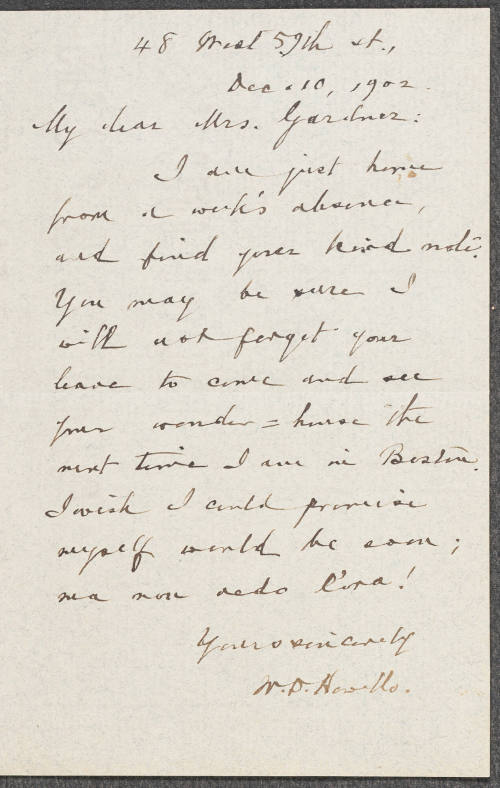 48 West 59th st.,
Dec. 10, 1902.
My dear Mrs. Gardner:
I am just home
from a week's absence,
and find your kind note.
You may be sure I
will not forget your
leave to come and see
your wonder=house the
next time I am in Boston.
I wish I could promise
myself would be soon;
ma non vedo l'ora!
Yours sincerely
W. D. Howells.